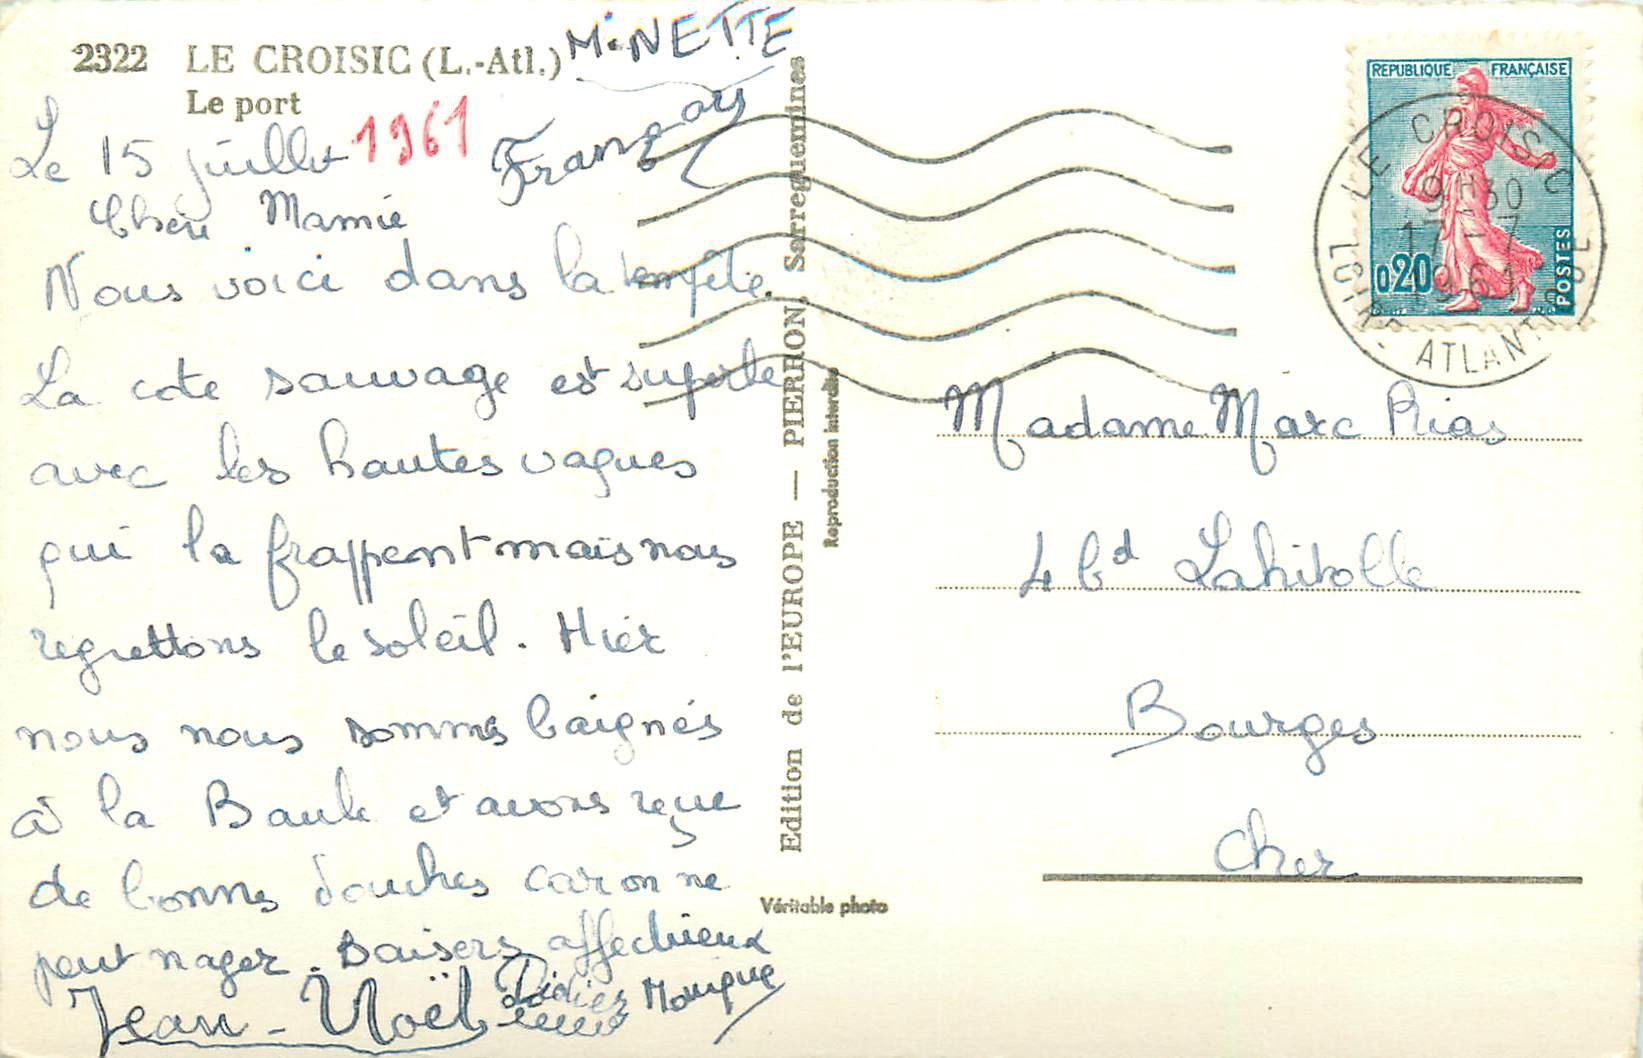 2322 LE CROISIC (L.-Atl.)
Le port
MiNETTE
Le 15 juillet 1961
François
Chère Mamie
Nous voici dans la tempête.
La cote sauvage est superbe
avec les hautes vagues
qui la frappent mais nous
regrettons le soleil. Hier
nous nous sommes baignés
à la Baule et avons reçue
de bonnes douches car on ne
peut nager. Baisers affectueux
Jean-Noël Didier Monique
Edition de l'EUROPE — PIERRON, Sarreguemines
Reproduction interdite
Véritable photo
REPUBLIQUE FRANÇAISE
0,20
POSTES
LE CROISIC
9H30
17-7
1961
LOIRE ATLANTIQUE
Madame Marc Rias
4 bd Lahitolle
Bourges
Cher